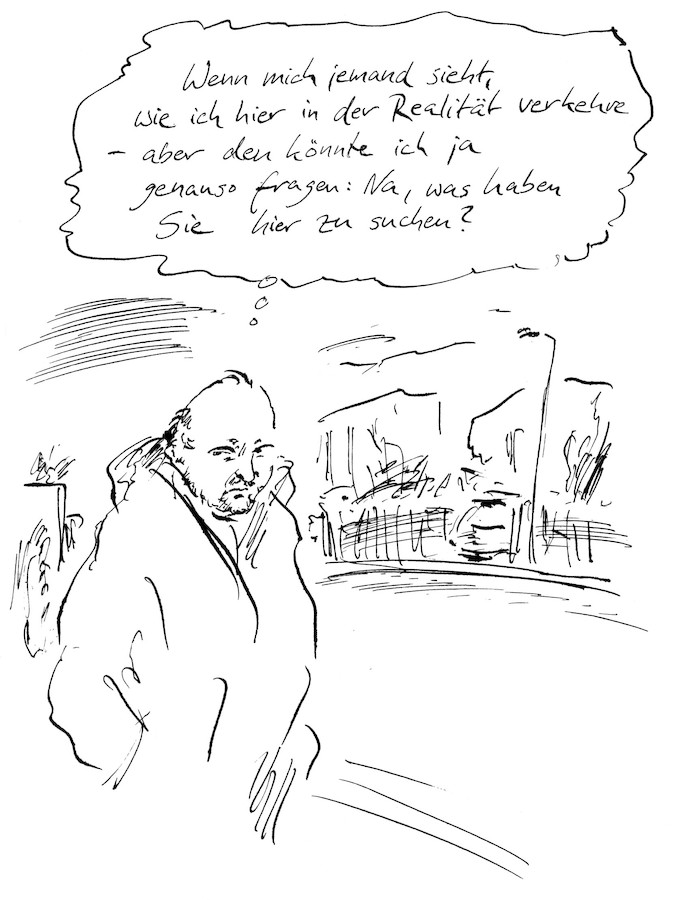 Wenn mich jemand sieht,
wie ich hier in der Realität verkehre
- aber den könnte ich ja
genauso fragen: Na, was haben
Sie hier zu suchen?